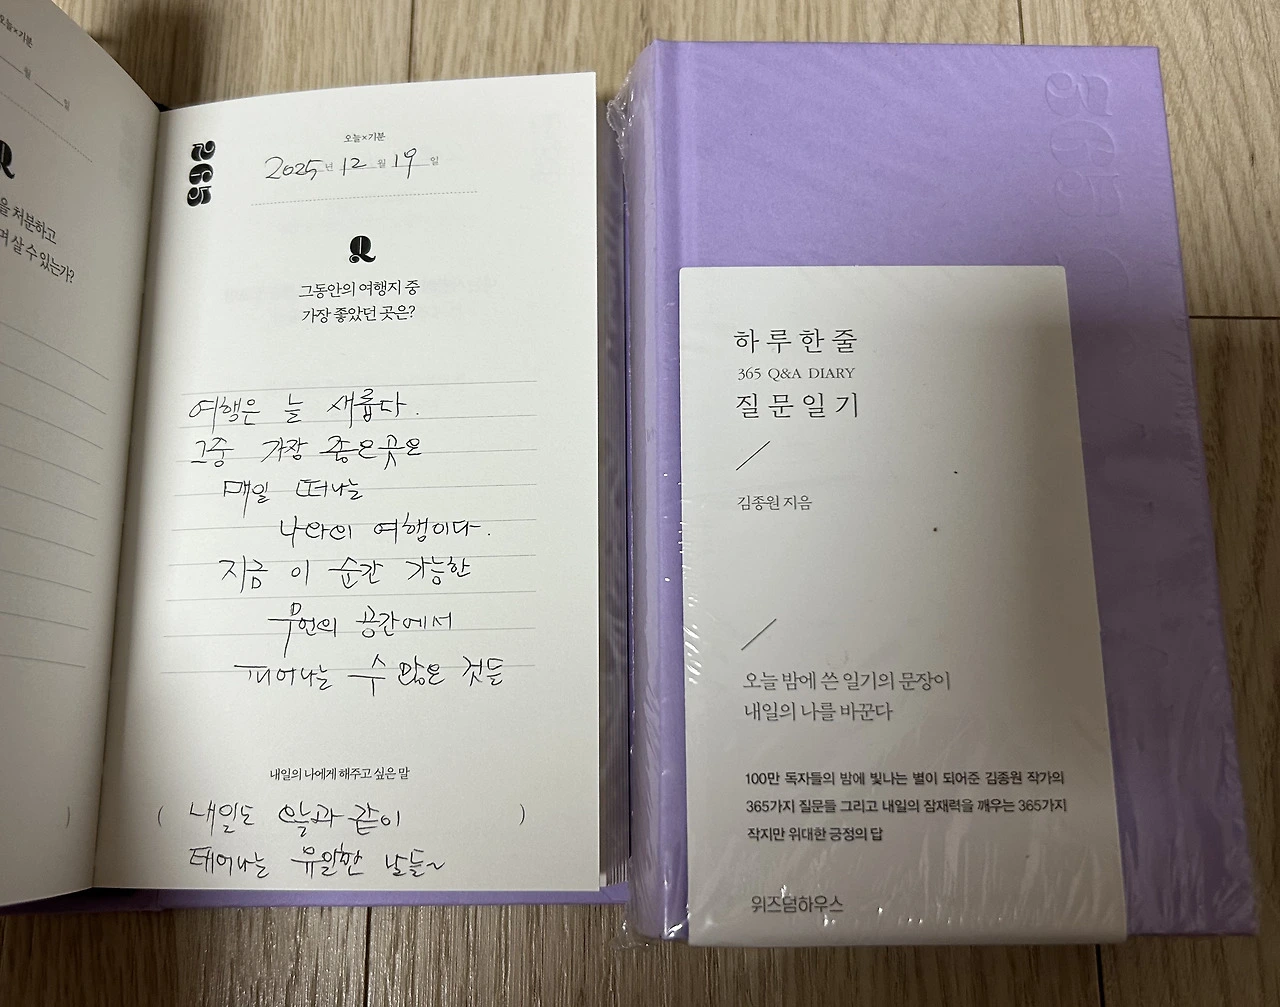 오늘×기분
월 일
Q
을 처분하고
며 살 수 있는가?
)
265
오늘×기분
2025년 12월 19일
Q
그동안의 여행지 중
가장 좋았던 곳은?
여행은 늘 새롭다.
그중 가장 좋은곳은
매일 떠나는
나와의 여행이다.
지금 이 순간 가능한
무언의 공간에서
피어나는 수 많은 것들
내일의 나에게 해주고 싶은 말
( 내일도 오늘과 같이 )
태어나는 유일한 날들~
365
하루 한 줄
365 Q&A DIARY
질문일기
김종원 지음
오늘 밤에 쓴 일기의 문장이
내일의 나를 바꾼다
100만 독자들의 밤에 빛나는 별이 되어준 김종원 작가의
365가지 질문들 그리고 내일의 잠재력을 깨우는 365가지
작지만 위대한 긍정의 답
위즈덤하우스